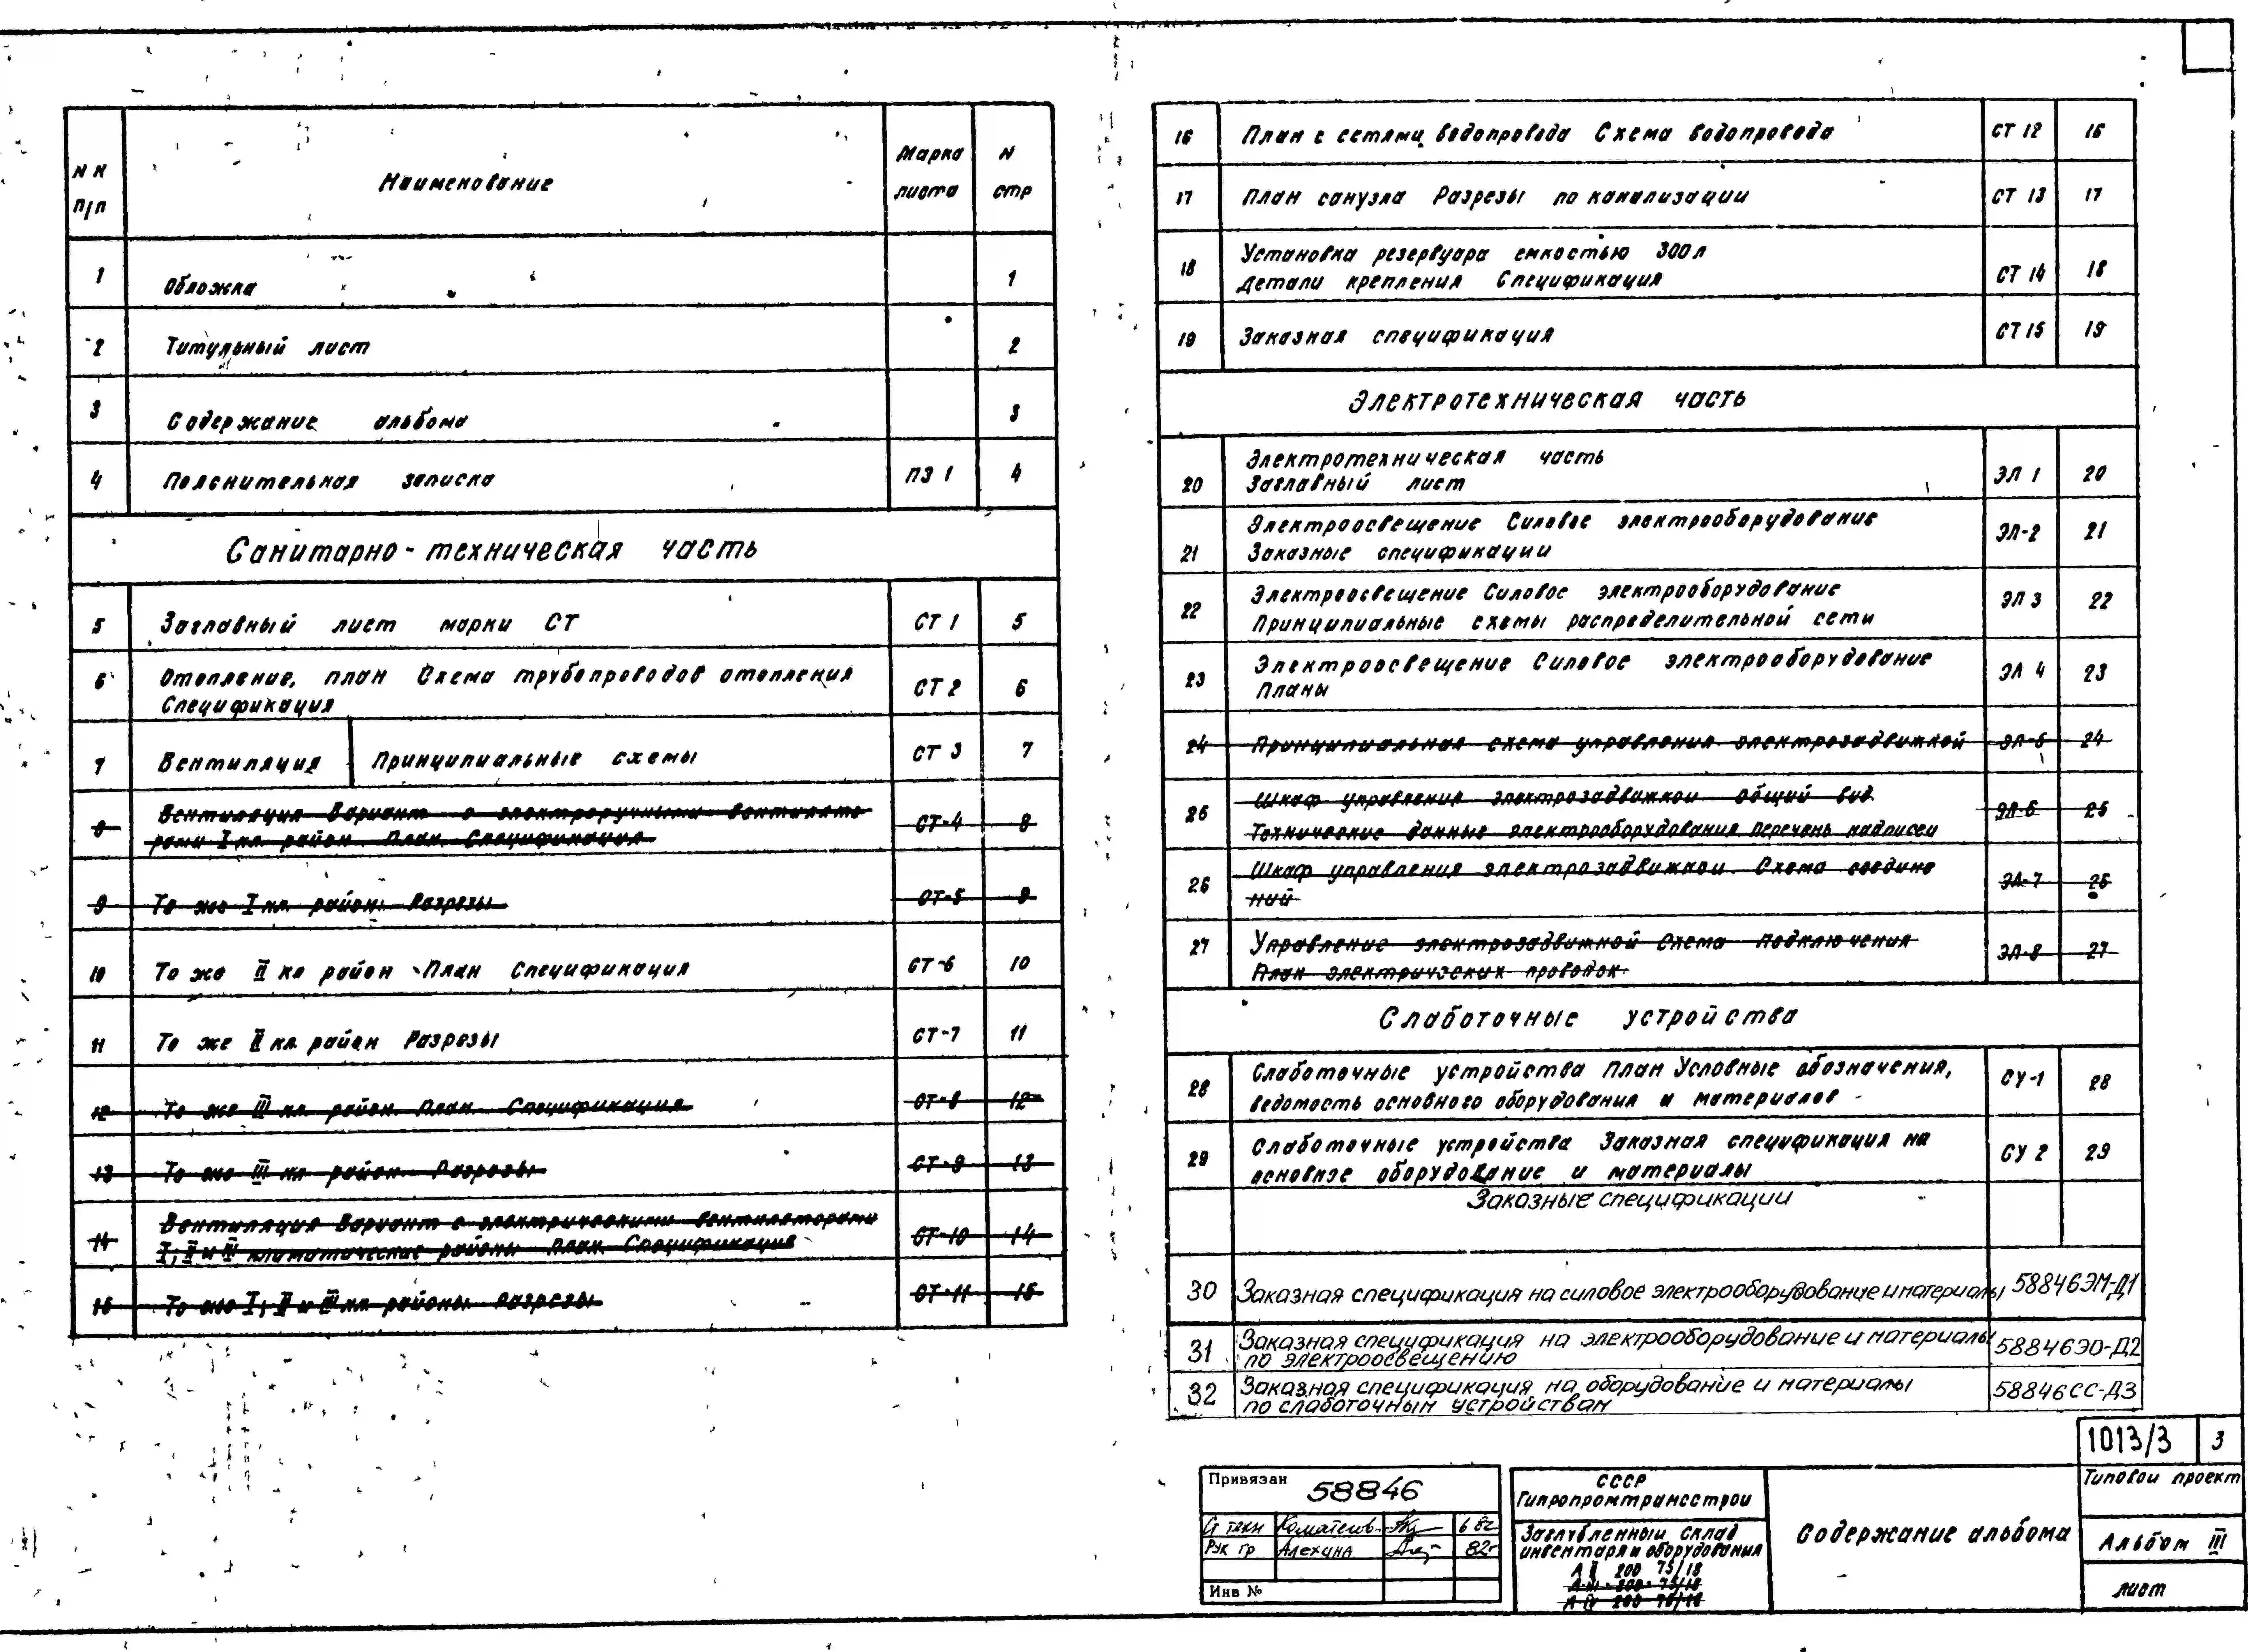 N N п/п Наименование Марка листа N стр
1 Обложка 1
2 Титульный лист 2
3 Содержание альбома 3
4 Пояснительная записка ПЗ 1 4
Санитарно-техническая часть
5 Заглавный лист марки СТ СТ 1 5
6 Отопление, план Схема трубопроводов отопления
Спецификация СТ 2 6
7 Вентиляция Принципиальные схемы СТ 3 7
8 Вентиляция Вариант с электроручными вентилято
рами I кл. район. План. Спецификация СТ-4 8
9 То же I кл. район. Разрезы СТ-5 9
10 То же II кл район План Спецификация СТ-6 10
11 То же II кл. район Разрезы СТ-7 11
12 То же III кл. район. План. Спецификация СТ-8 12
13 То же III кл район. Разрезы СТ-9 13
14 Вентиляция Вариант с электрическими вентиляторами
I, II и III климатические районы План. Спецификация СТ-10 14
15 То же I, II и III кл. районы. Разрезы СТ-11 15
16 План с сетями водопровода Схема водопровода СТ 12 16
17 План санузла Разрезы по канализации СТ 13 17
18 Установка резервуара емкостью 300л
Детали крепления Спецификация СТ 14 18
19 Заказная спецификация СТ 15 19
Электротехническая часть
20 Электротехническая часть
Заглавный лист ЭЛ 1 20
21 Электроосвещение Силовое электрооборудование
Заказные спецификации ЭЛ-2 21
22 Электроосвещение Силовое электрооборудование
Принципиальные схемы распределительной сети ЭЛ 3 22
23 Электроосвещение Силовое электрооборудование
Планы ЭЛ 4 23
24 Принципиальная схема управления электрозадвижкой ЭЛ-5 24
25 Шкаф управления электрозадвижкой Общий вид
Технические данные электрооборудования. Перечень надписей ЭЛ-6 25
26 Шкаф управления электрозадвижкой. Схема соедине
ний ЭЛ-7 26
27 Управление электрозадвижкой Схема подключения
План электрических проводок ЭЛ-8 27
Слаботочные устройства
28 Слаботочные устройства План Условные обозначения,
ведомость основного оборудования и материалов СУ-1 28
29 Слаботочные устройства Заказная спецификация на
основное оборудование и материалы СУ 2 29
Заказные спецификации
30 Заказная спецификация на силовое электрооборудование и материалы 58846ЭМ-Д1
31 Заказная спецификация на электрооборудование и материалы
по электроосвещению 58846ЭО-Д2
32 Заказная спецификация на оборудование и материалы
по слаботочным устройствам 58846СС-Д3
1013/3 3
Привязан 58846
Ст техн 6 82г
Рук гр Алехина 82г
Инв №
СССР
Гипропромтрансстрой
Заглубленный склад
инвентаря и оборудования
А II 200 75/18
А-III-200-75/18
А IV 200 75/18
Содержание альбома
Типовой проект
Альбом III
лист